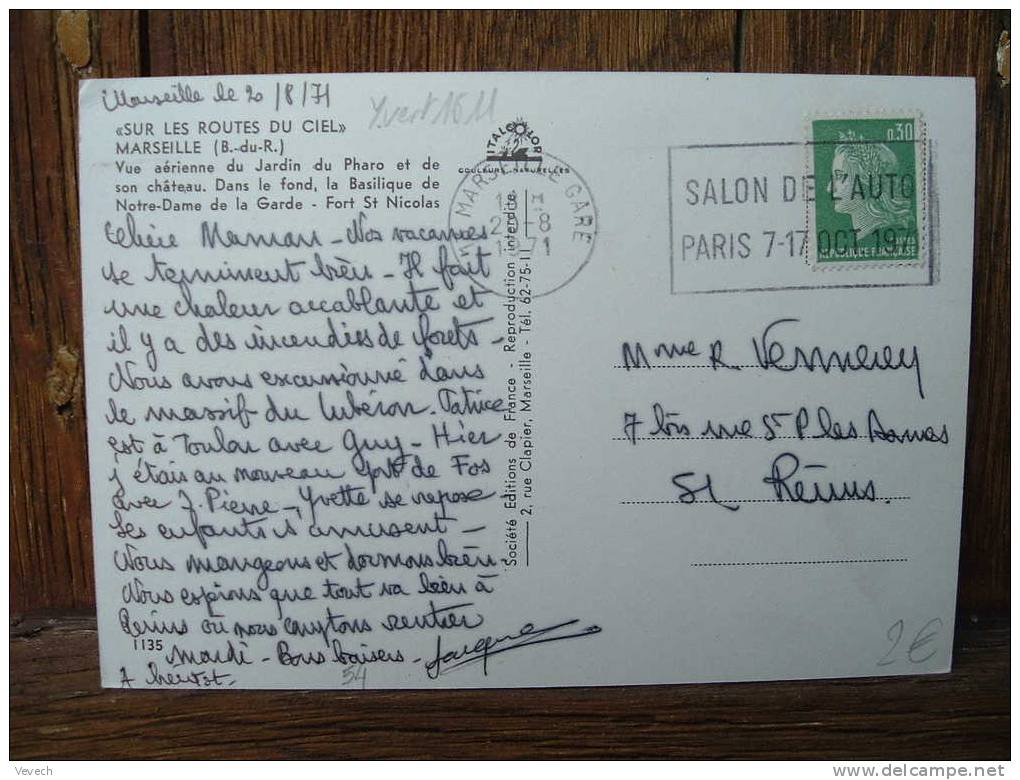 Marseille le 20/8/71
Yvert 1611
«SUR LES ROUTES DU CIEL»
MARSEILLE (B.-du-R.)
Vue aérienne du Jardin du Pharo et de
son château. Dans le fond, la Basilique de
Notre-Dame de la Garde - Fort St Nicolas
Chère Maman - Nos vacances
se terminent bien - Il fait
une chaleur accablante et
il y a des incendies de forets -
Nous avons excursionné dans
le massif du Lubéron. Patrice
est à Toulon avec Guy - Hier
j'étais au nouveau port de Fos
avec J. Pierre - Yvette se repose -
Les enfants s'amusent -
Nous mangeons et dormons bien -
Nous espérons que tout va bien à
Reims où nous comptons rentrer
mardi - Bons baisers -
A bientôt -
1135
54
ITALCOLOR
COULEURS NATURELLES
Société Editions de France - Reproduction interdite
2, rue Clapier, Marseille - Tél. 62-75-11
MARSEILLE GARE
-8
1971
SALON DE L'AUTO
PARIS 7-17 OCT. 197
0,30
POSTES
REPUBLIQUE FRANÇAISE
Mme R
7 bis rue St P les Dames
51 Reims.
2€
Vevech
delcampe.net